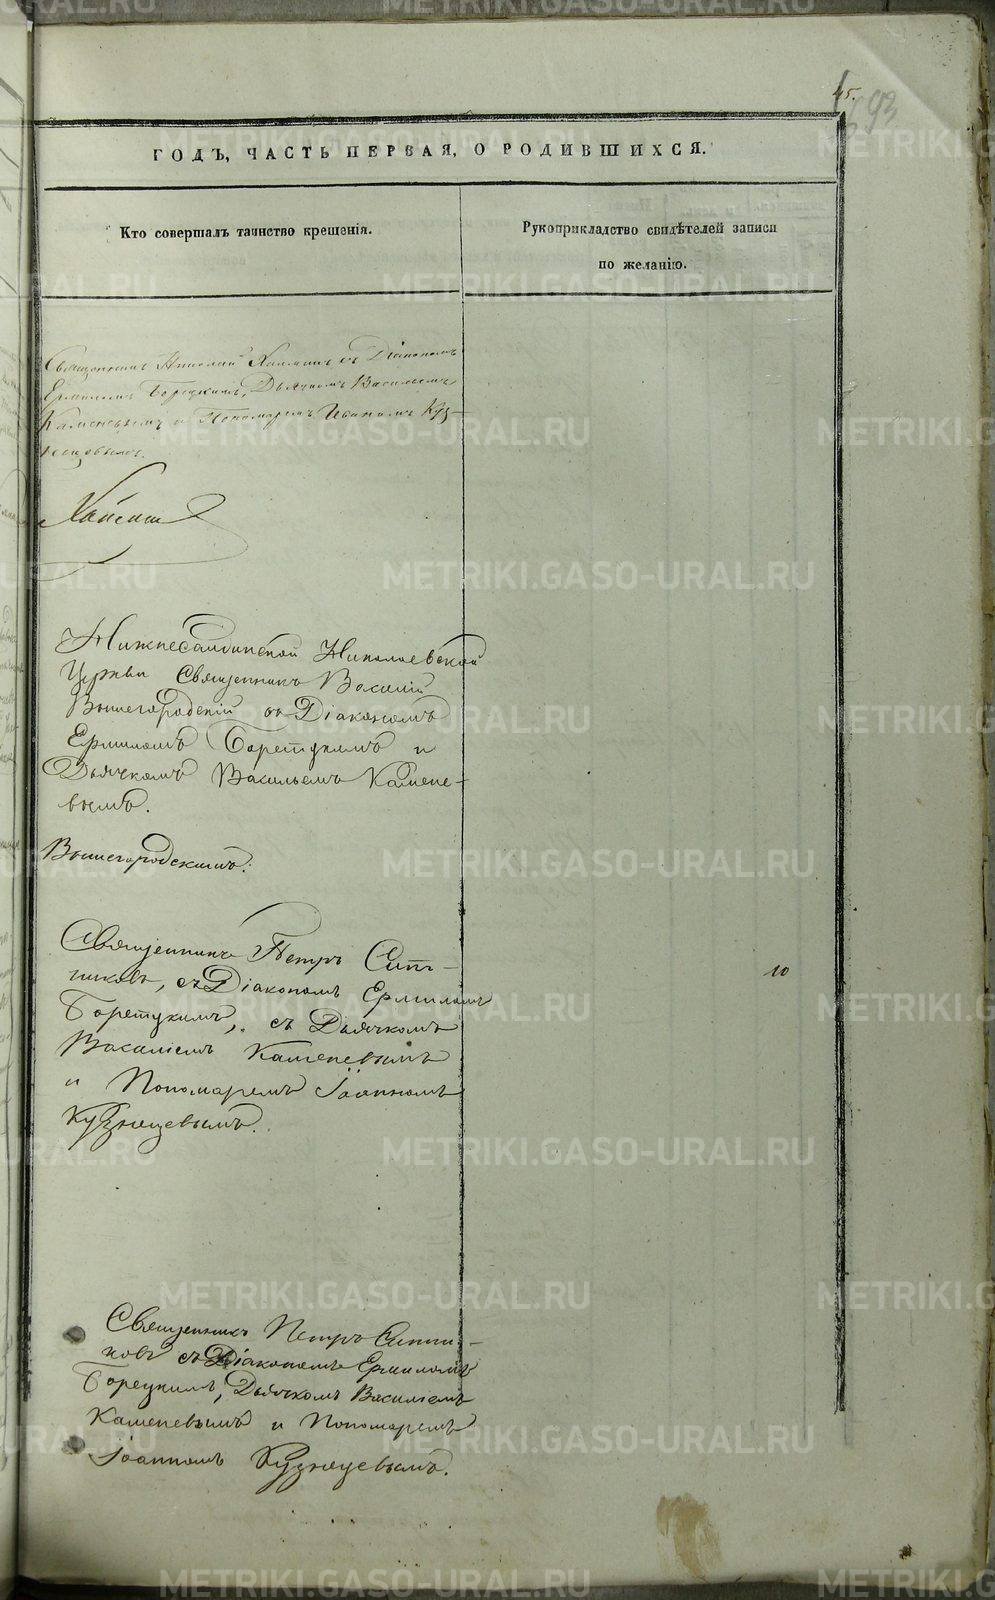 45.
93
ГОДЪ, ЧАСТЬ ПЕРВАЯ, О РОДИВШИХСЯ.
Кто совершалъ таинство крещенія.
Рукоприкладство свидѣтелей записи
по желанію.
Священникъ Николай Хлынинъ съ Діакономъ
Ермиломъ Борецкимъ, Дьячкомъ Васильемъ
Каменевымъ и Пономаремъ Иваномъ Куз-
нецовымъ.
Нижнесалдинской Николаевской
Церкви Священникъ Василій
Вышегородскій съ Діакономъ
Ермиломъ Боретцкимъ и
Дьячкомъ Васильемъ Камене-
вымъ.
Вышегородскимъ.
Священникъ Петръ Ситт-
никовъ, съ Діакономъ Ермиломъ
Боретцкимъ, съ Дьячкомъ
Василіемъ Каменевымъ
и Пономаремъ Іоанномъ
Кузнецевымъ.
10
Священникъ Петръ Ситтни-
ковъ съ Діакономъ Ермиломъ
Борецкимъ, Дьячкомъ Василіемъ
Каменевымъ и Пономаремъ
Іоанномъ Кузнецевымъ.
METRIKI.GASO-URAL.RU